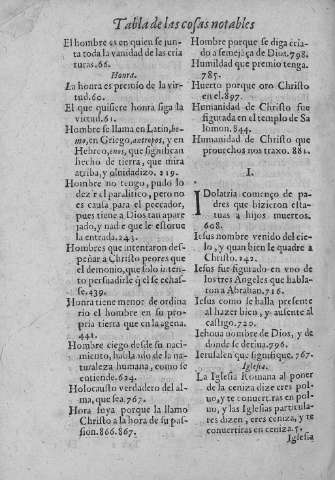 Tabla de las cosas notables
El hombre es en quien se jun-
ta toda la vanidad de las cria
turas. 66.
Honra.
La honra es premio de la vir-
tud. 60.
El que quisiere honra siga la
virtud. 61.
Hombre se llama en Latin, ho-
mo, en Griego, antropos, y en
Hebreo, enos, que significan
hecho de tierra, que mira
arriba, y olvidadizo. 219.
Hombre no tengo, pudo lo
dezir el paralitico, pero no
es causa para el peccador,
pues tiene a Dios tan apare
jado, y nadie que le estorue
la entrada. 243.
Hombres que intentaron des-
peñar a Christo peores que
el demonio, que solo inten-
to persuadirle q̃ el se echas-
se, 439.
Honra tiene menor de ordina
rio el hombre en su pro-
pria tierra que en la agena.
441.
Hombre ciego desde su naci-
miento, habla ndo de la na-
turaleza humana, como se
entiende. 624.
Holocausto verdadero del al-
ma, que sea. 767.
Hora suya porque la llamo
Christo a la hora de su pas-
sion. 866.867.
Hombre porque se diga cria-
do a semejãça de Dios. 798.
Humildad que premio tenga.
785.
Huerto porque oro Christo
en el. 897.
Humanidad de Christo fue
figurada en el templo de Sa
lomon. 844.
Humanidad de Christo que
prouechos nos traxo. 881.
I.
IDolatria començo de pa-
dres que hizieron esta-
tuas a hijos muertos.
608.
Iesus nombre venido del cie-
lo, y quan bien le quadre a
Christo. 242.
Iesus fue figurado en vno de
los tres Angeles que habla-
ron a Abrahan. 716.
Iesus como se halla presente
al hazer bien, y ausente al
castigo. 720.
Iehoua nombre de Dios, y de
donde se deriua. 796.
Ierusalen que signifique. 767.
Iglesia.
La Iglesia Romana al poner
de la ceniza dize eres pol-
uo, y te conuertiras en pol-
uo, y las Iglesias particula-
res dizen, eres ceniza, y te
conuertiras en ceniza. 5.
Iglesia